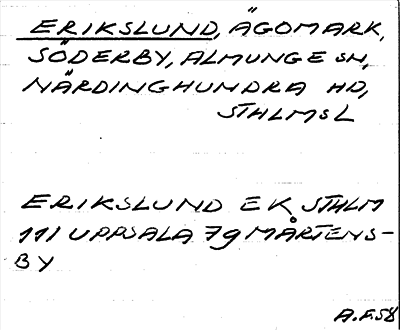 ERIKSLUND, ÄGOMARK,
SÖDERBY, ALMUNGE SN,
NÄRDINGHUNDRA HD,
STHLMS L
ERIKSLUND EK STHLM
111 UPPSALA 79 MÅRTENS-
BY
A.F.58